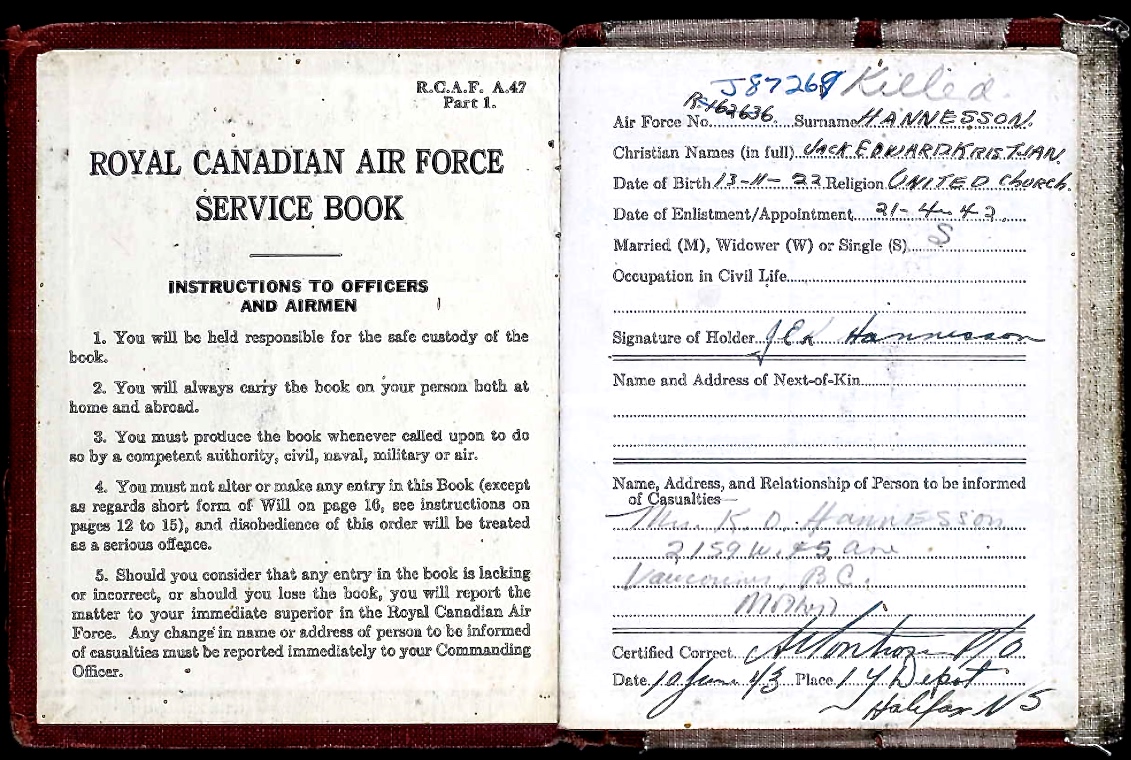 R.C.A.F. A.47
Part 1.
ROYAL CANADIAN AIR FORCE
SERVICE BOOK
INSTRUCTIONS TO OFFICERS
AND AIRMEN
1. You will be held responsible for the safe custody of the
book.
2. You will always carry the book on your person both at
home and abroad.
3. You must produce the book whenever called upon to do
so by a competent authority, civil, naval, military or air.
4. You must not alter or make any entry in this Book (except
as regards short form of Will on page 16, see instructions on
pages 12 to 15), and disobedience of this order will be treated
as a serious offence.
5. Should you consider that any entry in the book is lacking
or incorrect, or should you lose the book, you will report the
matter to your immediate superior in the Royal Canadian Air
Force. Any change in name or address of person to be informed
of casualties must be reported immediately to your Commanding
Officer.
J87269 Killed.
Air Force No. R-162636. Surname HANNESSON.
Christian Names (in full) JACK EDWARD KRISTJAN.
Date of Birth 13-11-22 Religion UNITED Church.
Date of Enlistment/Appointment 21-4-42.
Married (M), Widower (W) or Single (S) S
Occupation in Civil Life
Signature of Holder JEK Hannesson
Name and Address of Next-of-Kin
Name, Address, and Relationship of Person to be informed
of Casualties—
Mrs. K. O. HANNESSON
2159 W. 45 Ave
Vancouver, B.C.
Mother
Certified Correct P/O
Date 10 June 43 Place 1 Y Depot
Halifax NS